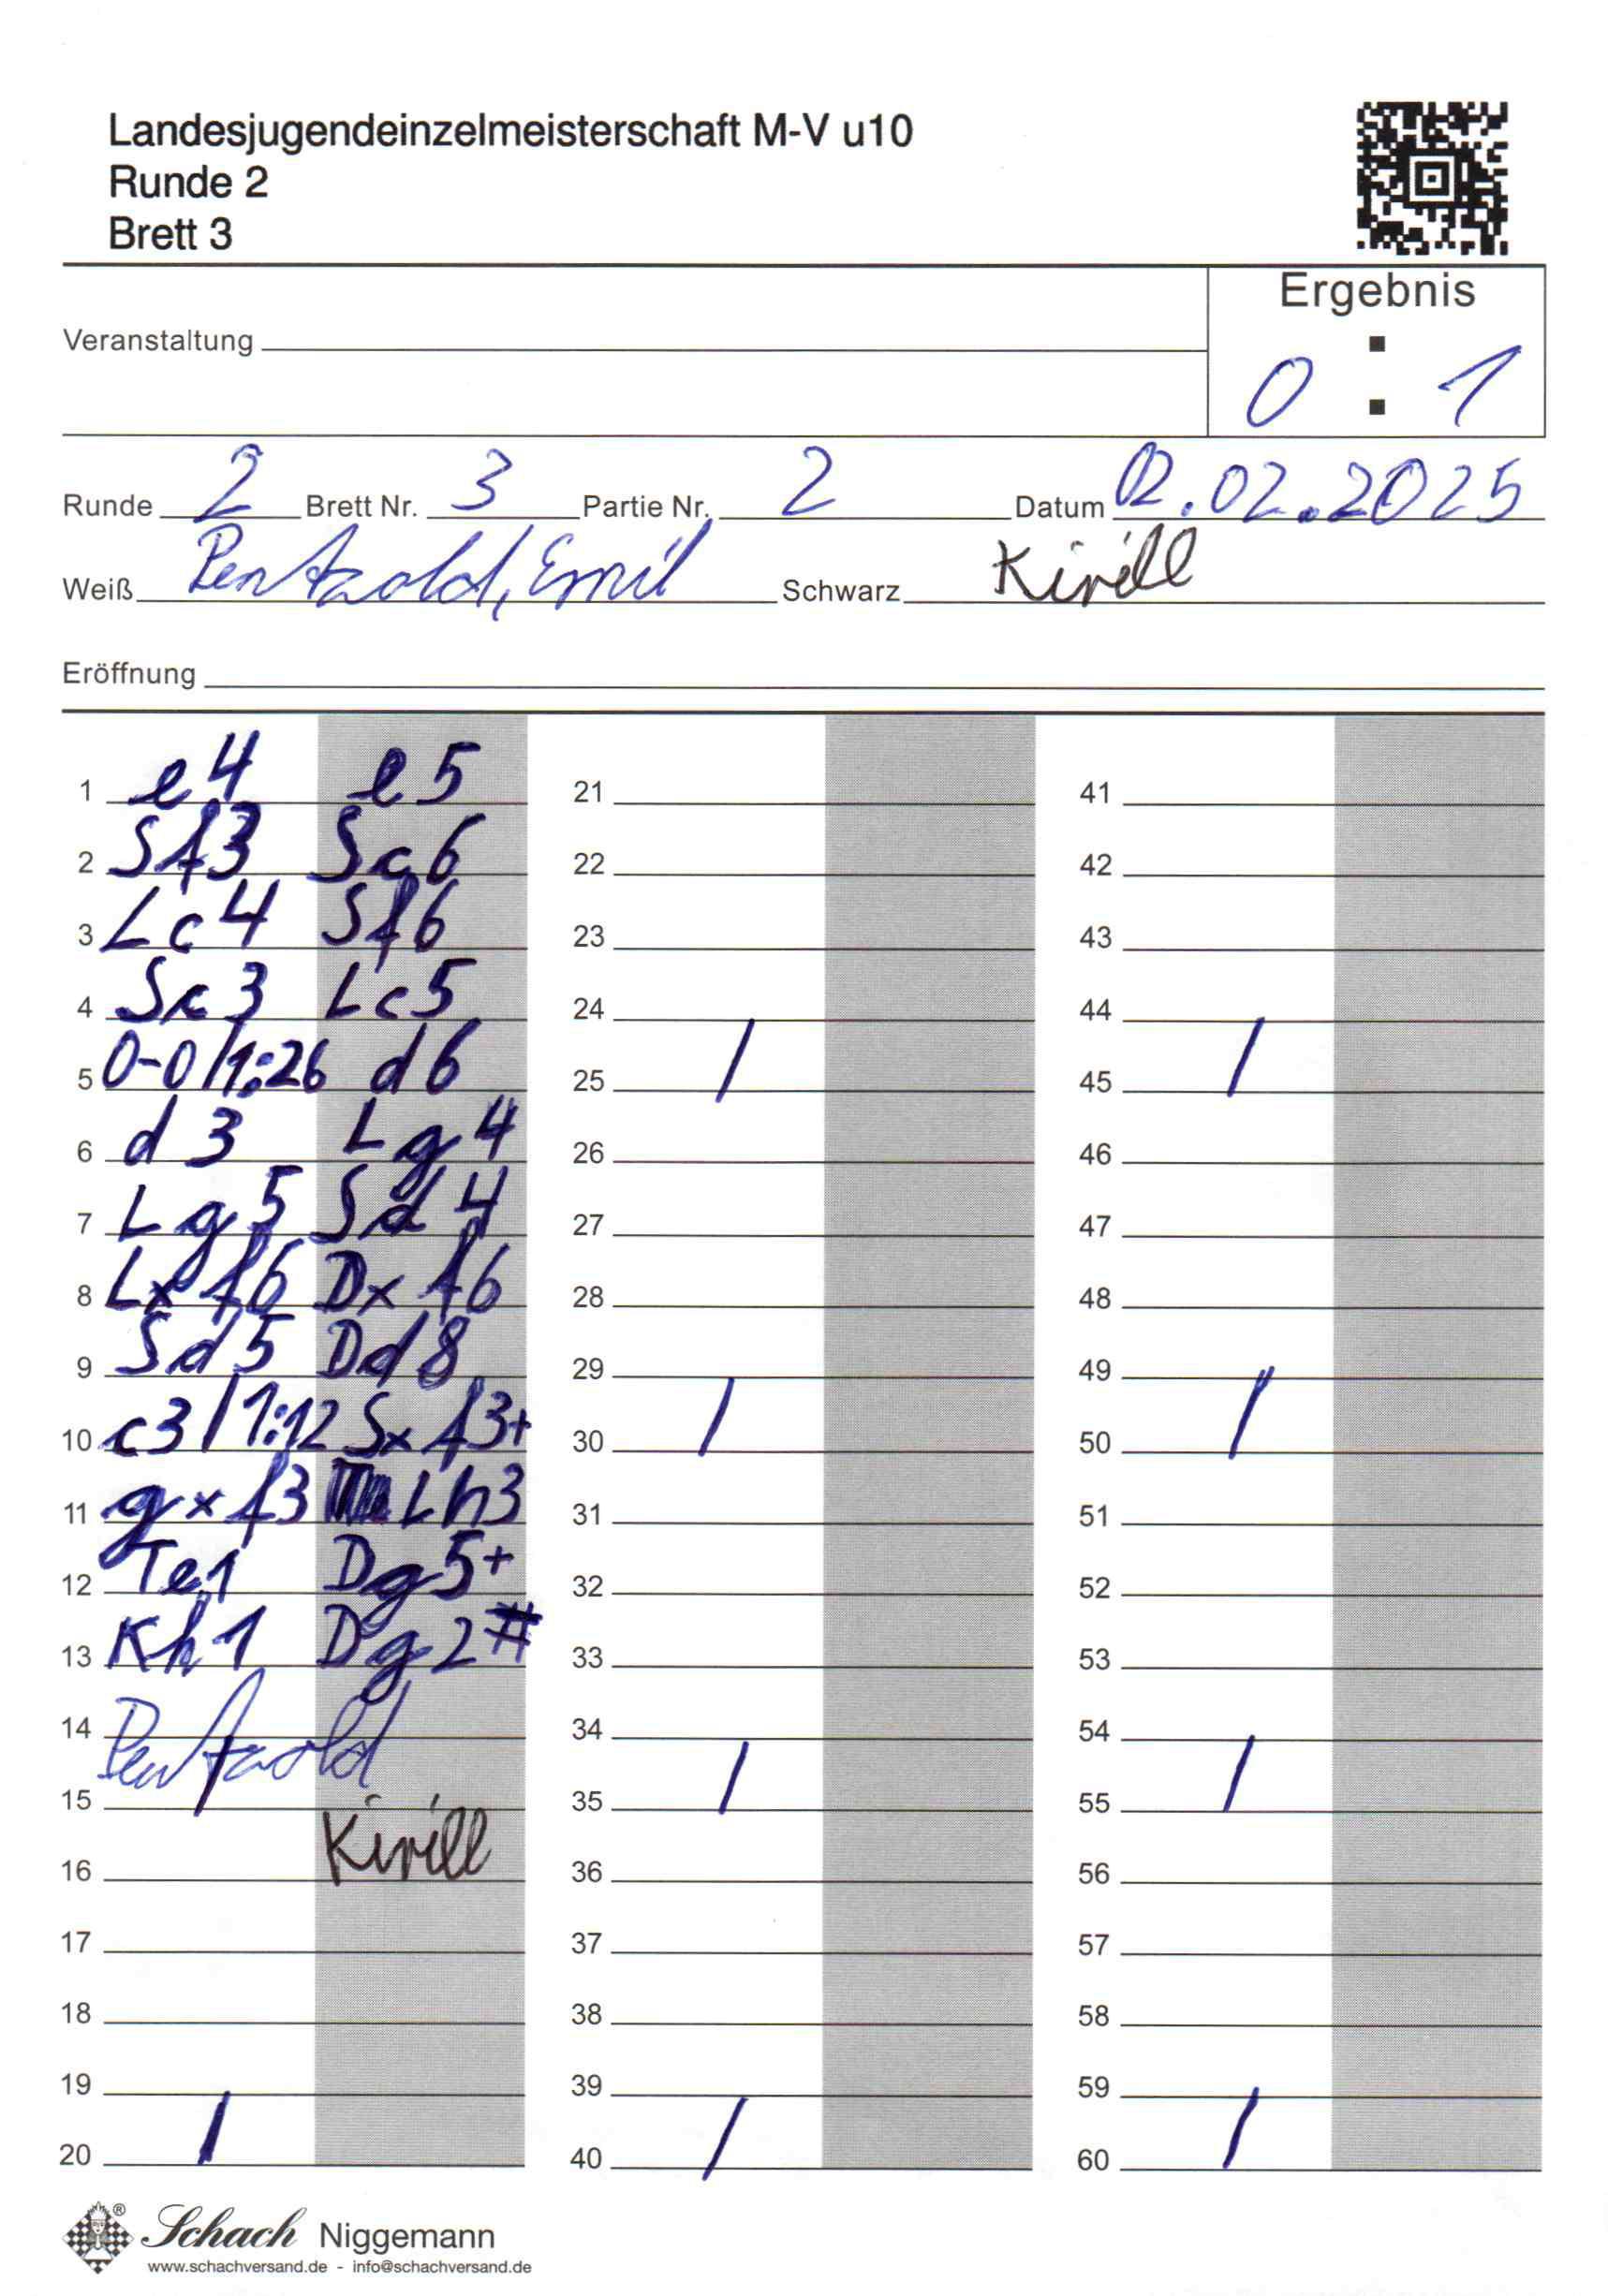 Landesjugendeinzelmeisterschaft M-V u10
Runde 2
Brett 3
Ergebnis
Veranstaltung
0 : 1
Runde 2 Brett Nr. 3 Partie Nr. 2 Datum 02.02.2025
Weiß Pentzold, Emil Schwarz Kirill
Eröffnung
1 e4 e5 21 41
2 Sf3 Sc6 22 42
3 Lc4 Sf6 23 43
4 Sc3 Lc5 24 44
5 0-0/1:26 d6 25 / 45 /
6 d3 Lg4 26 46
7 Lg5 Sd4 27 47
8 Lxf6 Dxf6 28 48
9 Sd5 Dd8 29 49
10 c3/1:12 Sxf3+ 30 / 50 /
11 gxf3 Lh3 31 51
12 Te1 Dg5+ 32 52
13 Kh1 Dg2# 33 53
14 Pentzold 34 54
15 / 35 / 55 /
16 Kirill 36 56
17 37 57
18 38 58
19 39 59
20 / 40 / 60 /
Schach Niggemann
www.schachversand.de - info@schachversand.de